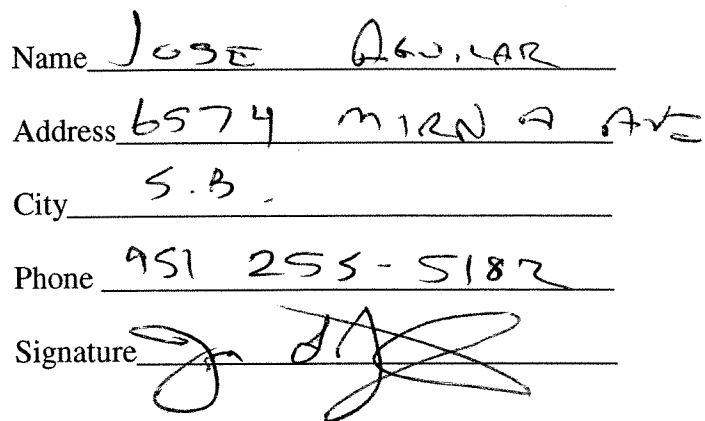 Name Jose Aguilar
Address 6574 MIRNA AVE
City S.B.
Phone 951 255-5182
Signature